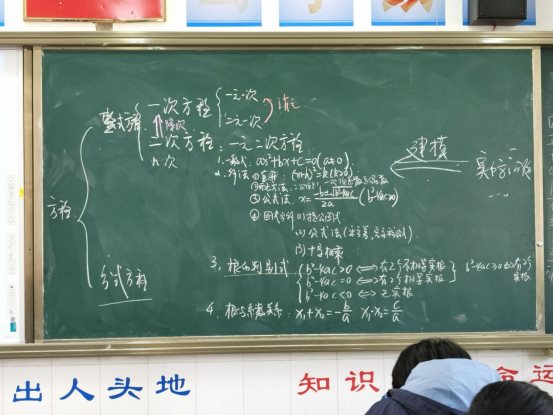 整式方程
一次方程
一元一次
二元一次
消元
降次
二次方程：一元二次方程
n次
1. 一般式：ax²+bx+c=0(a≠0)
2. 解法 ① 直开：(x+h)²=k(k≥0)
② 配方法：二次项
③ 公式法 x=
2a
④ 因式分解 (1) 提公因式
(2) 公式法(平方差,完全平方式)
(3) 十字相乘
3. 根的判别式
b²-4ac>0 ⟺ 有2个不相等实根
b²-4ac=0 ⟺ 有2个相等实根
b²-4ac<0 ⟺ 无实根
b²-4ac≥0 ⟺ 有2个
实根
4. 根与系数关系：x₁+x₂=-b/a x₁·x₂=c/a
方程
分式方程
建模
实际问题
...
出人头地
知识
命运